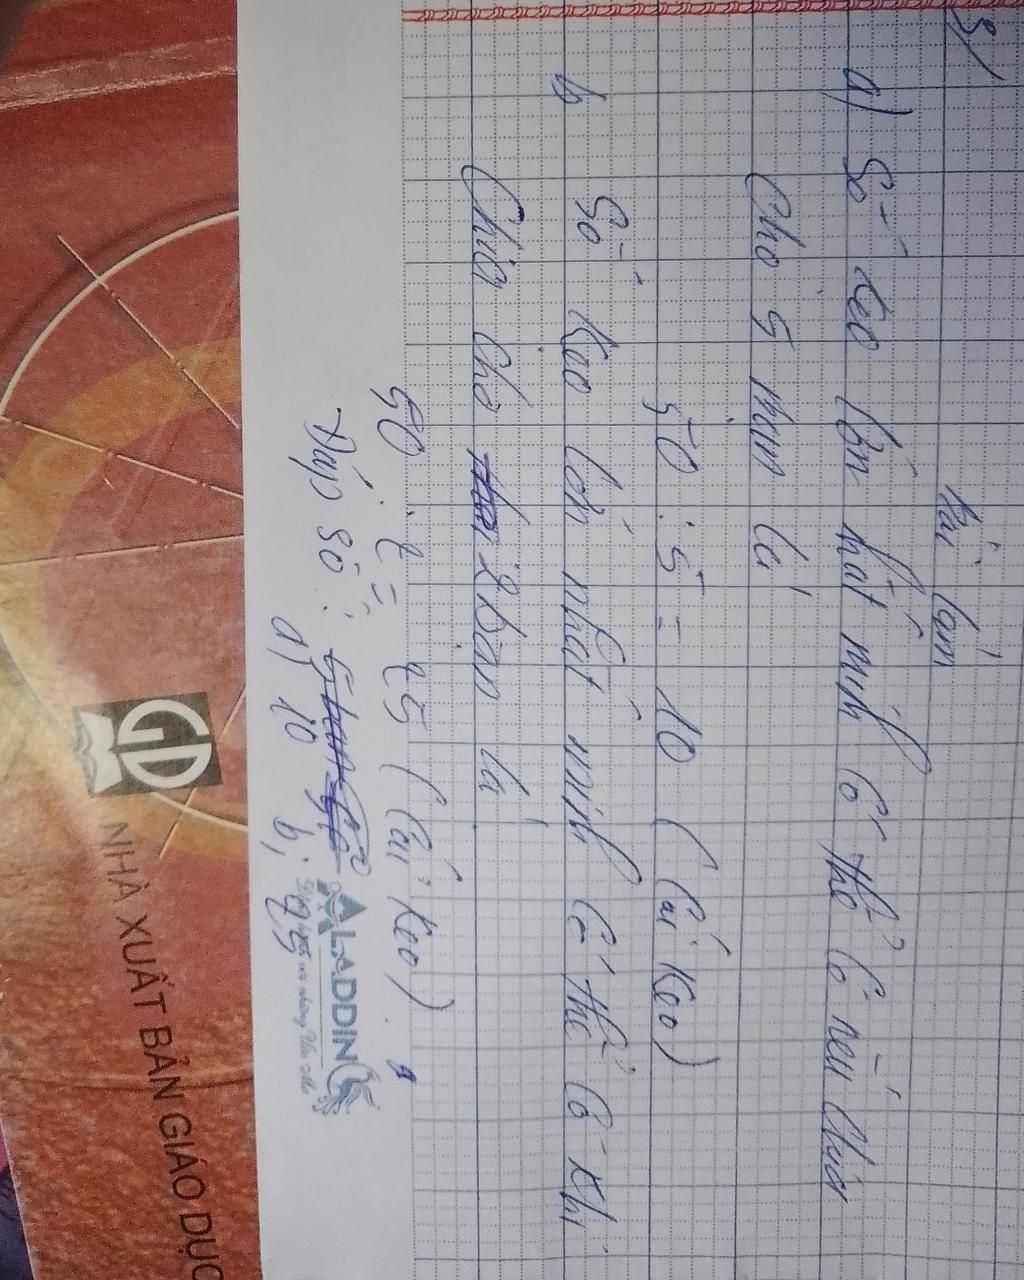 5/
Bài làm
a) Số kẹo lớn nhất mình có thể có nếu chia
Cho 5 bạn là
50 : 5 = 10 (Cái kẹo)
b Số kẹo lớn nhất mình có thể có khi
Chia cho 2 bạn là
50 : 2 = 25 (Cái kẹo)
Đáp số:
a) 10 b, 25
ALADDIN
GD
NHÀ XUẤT BẢN GIÁO DỤC